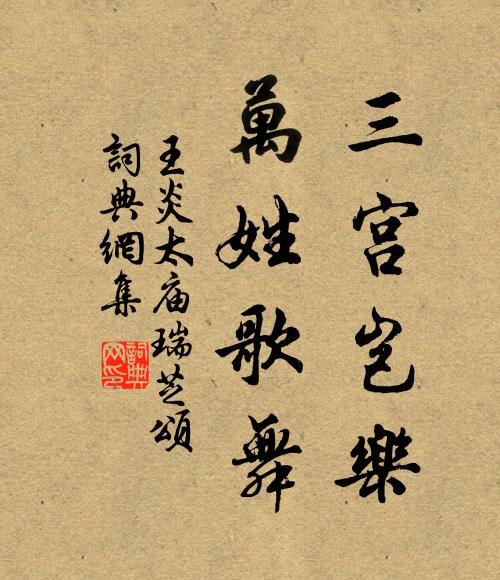 三宫岂樂
萬姓歌舞
王炎太庙瑞芝頌
詞典網集
詞典網印